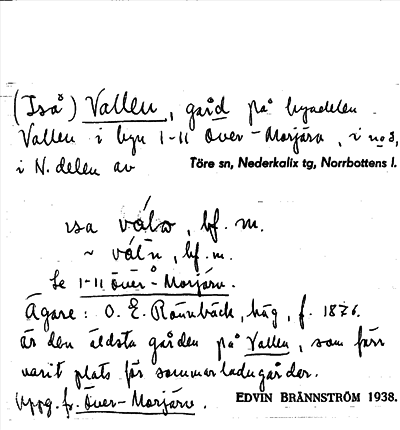 (Iså) Vallen, gård på byadelen
Vallen i byn 1-11 Över-Morjärv, i no 8,
i N. delen av Töre sn, Nederkalix tg, Norrbottens l.
ısa
~ , bf. m.
Se 1-11 Över-Morjärv.
Ägare: O. E. Rönnbäck, häg, f. 1876.
är den äldsta gården på Vallen, som förr
varit plats för sommarladugårdar.
Uppg. fr. Över-Morjärv. EDVIN BRÄNNSTRÖM 1938.